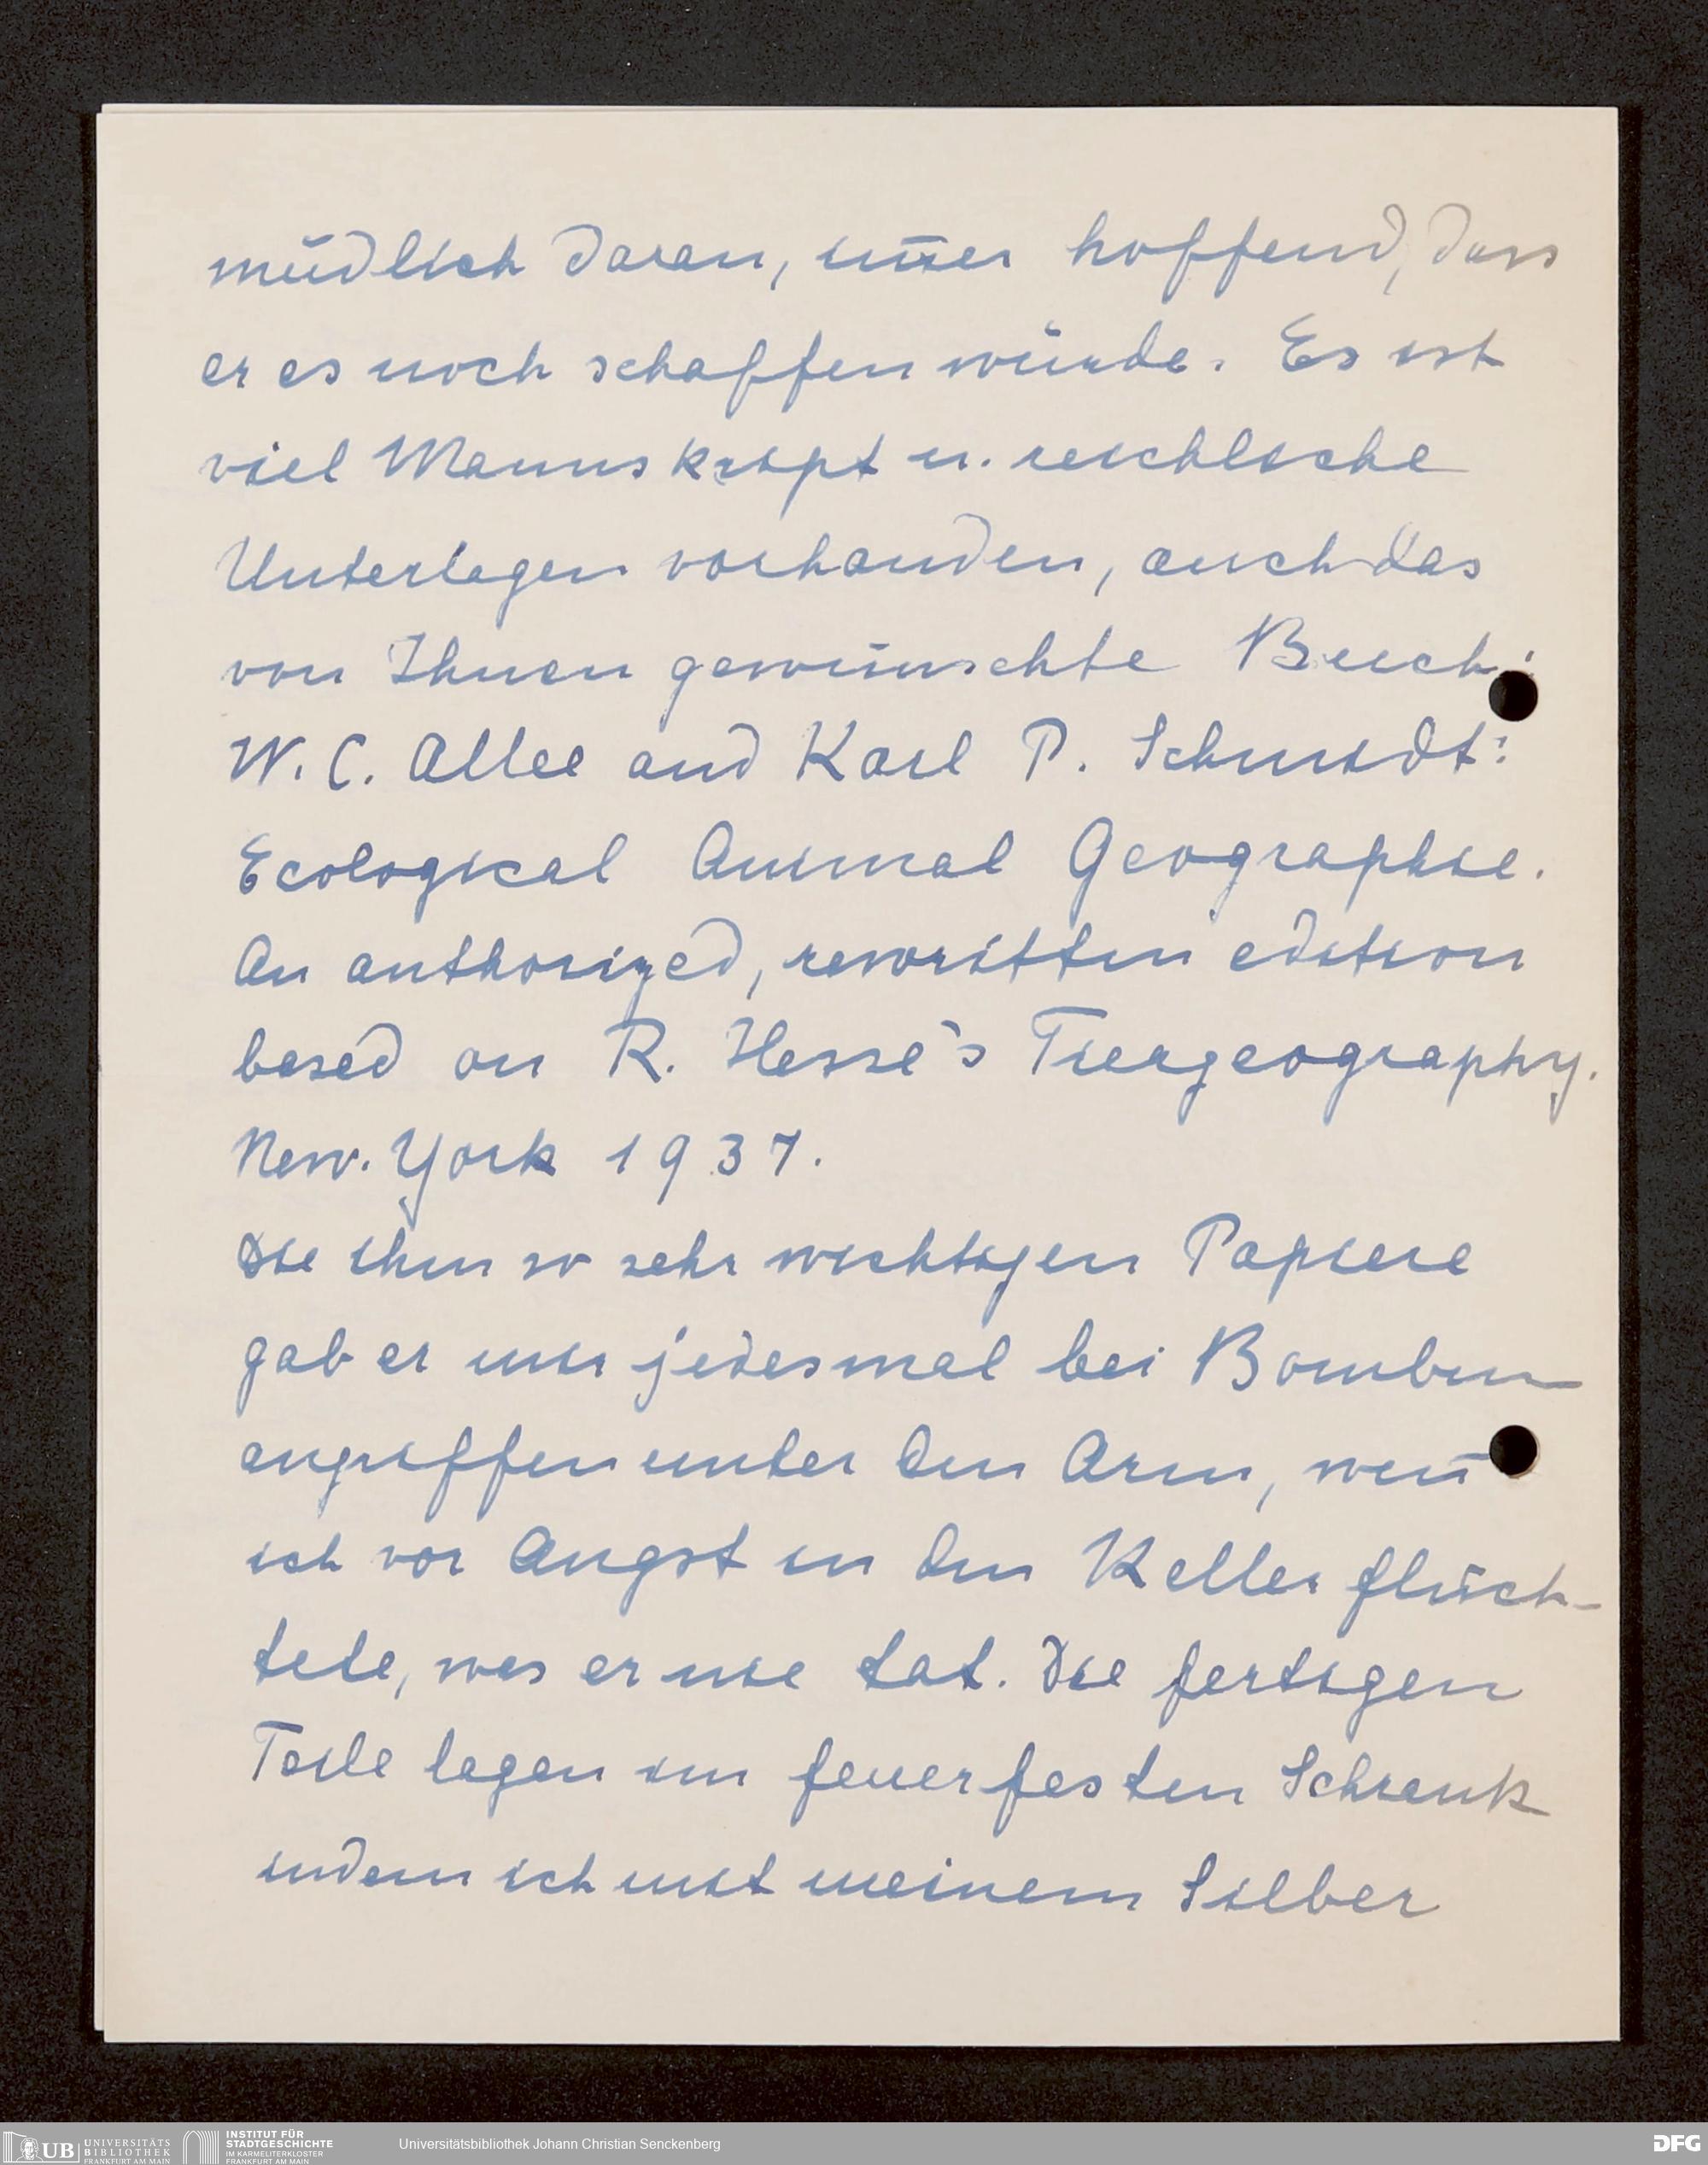 müdlich daran, im̅er hoffend, dass
er es noch schaffen würde. Es ist
viel Manuskript u. reichliche
Unterlagen vorhanden, auch das
von Ihnen gewünschte Buch:
W. C. Allee and Karl P. Schmidt:
Ecological Animal Geographie.
An authorized, rewritten edition
based on R. Hesse's Tiergeography.
New. York 1937.
Die ihm so sehr wichtigen Papiere
gab er mir jedesmal bei Bomben
angriffen unter den Arm, wen̅
ich vor Angst in den Keller flüch-
tete, was er nie tat. Die fertigen
Teile lagen im feuerfesten Schrank
indem ich mit meinem Silber
UB UNIVERSITÄTS BIBLIOTHEK FRANKFURT AM MAIN
INSTITUT FÜR STADTGESCHICHTE IM KARMELITERKLOSTER FRANKFURT AM MAIN
Universitätsbibliothek Johann Christian Senckenberg
DFG